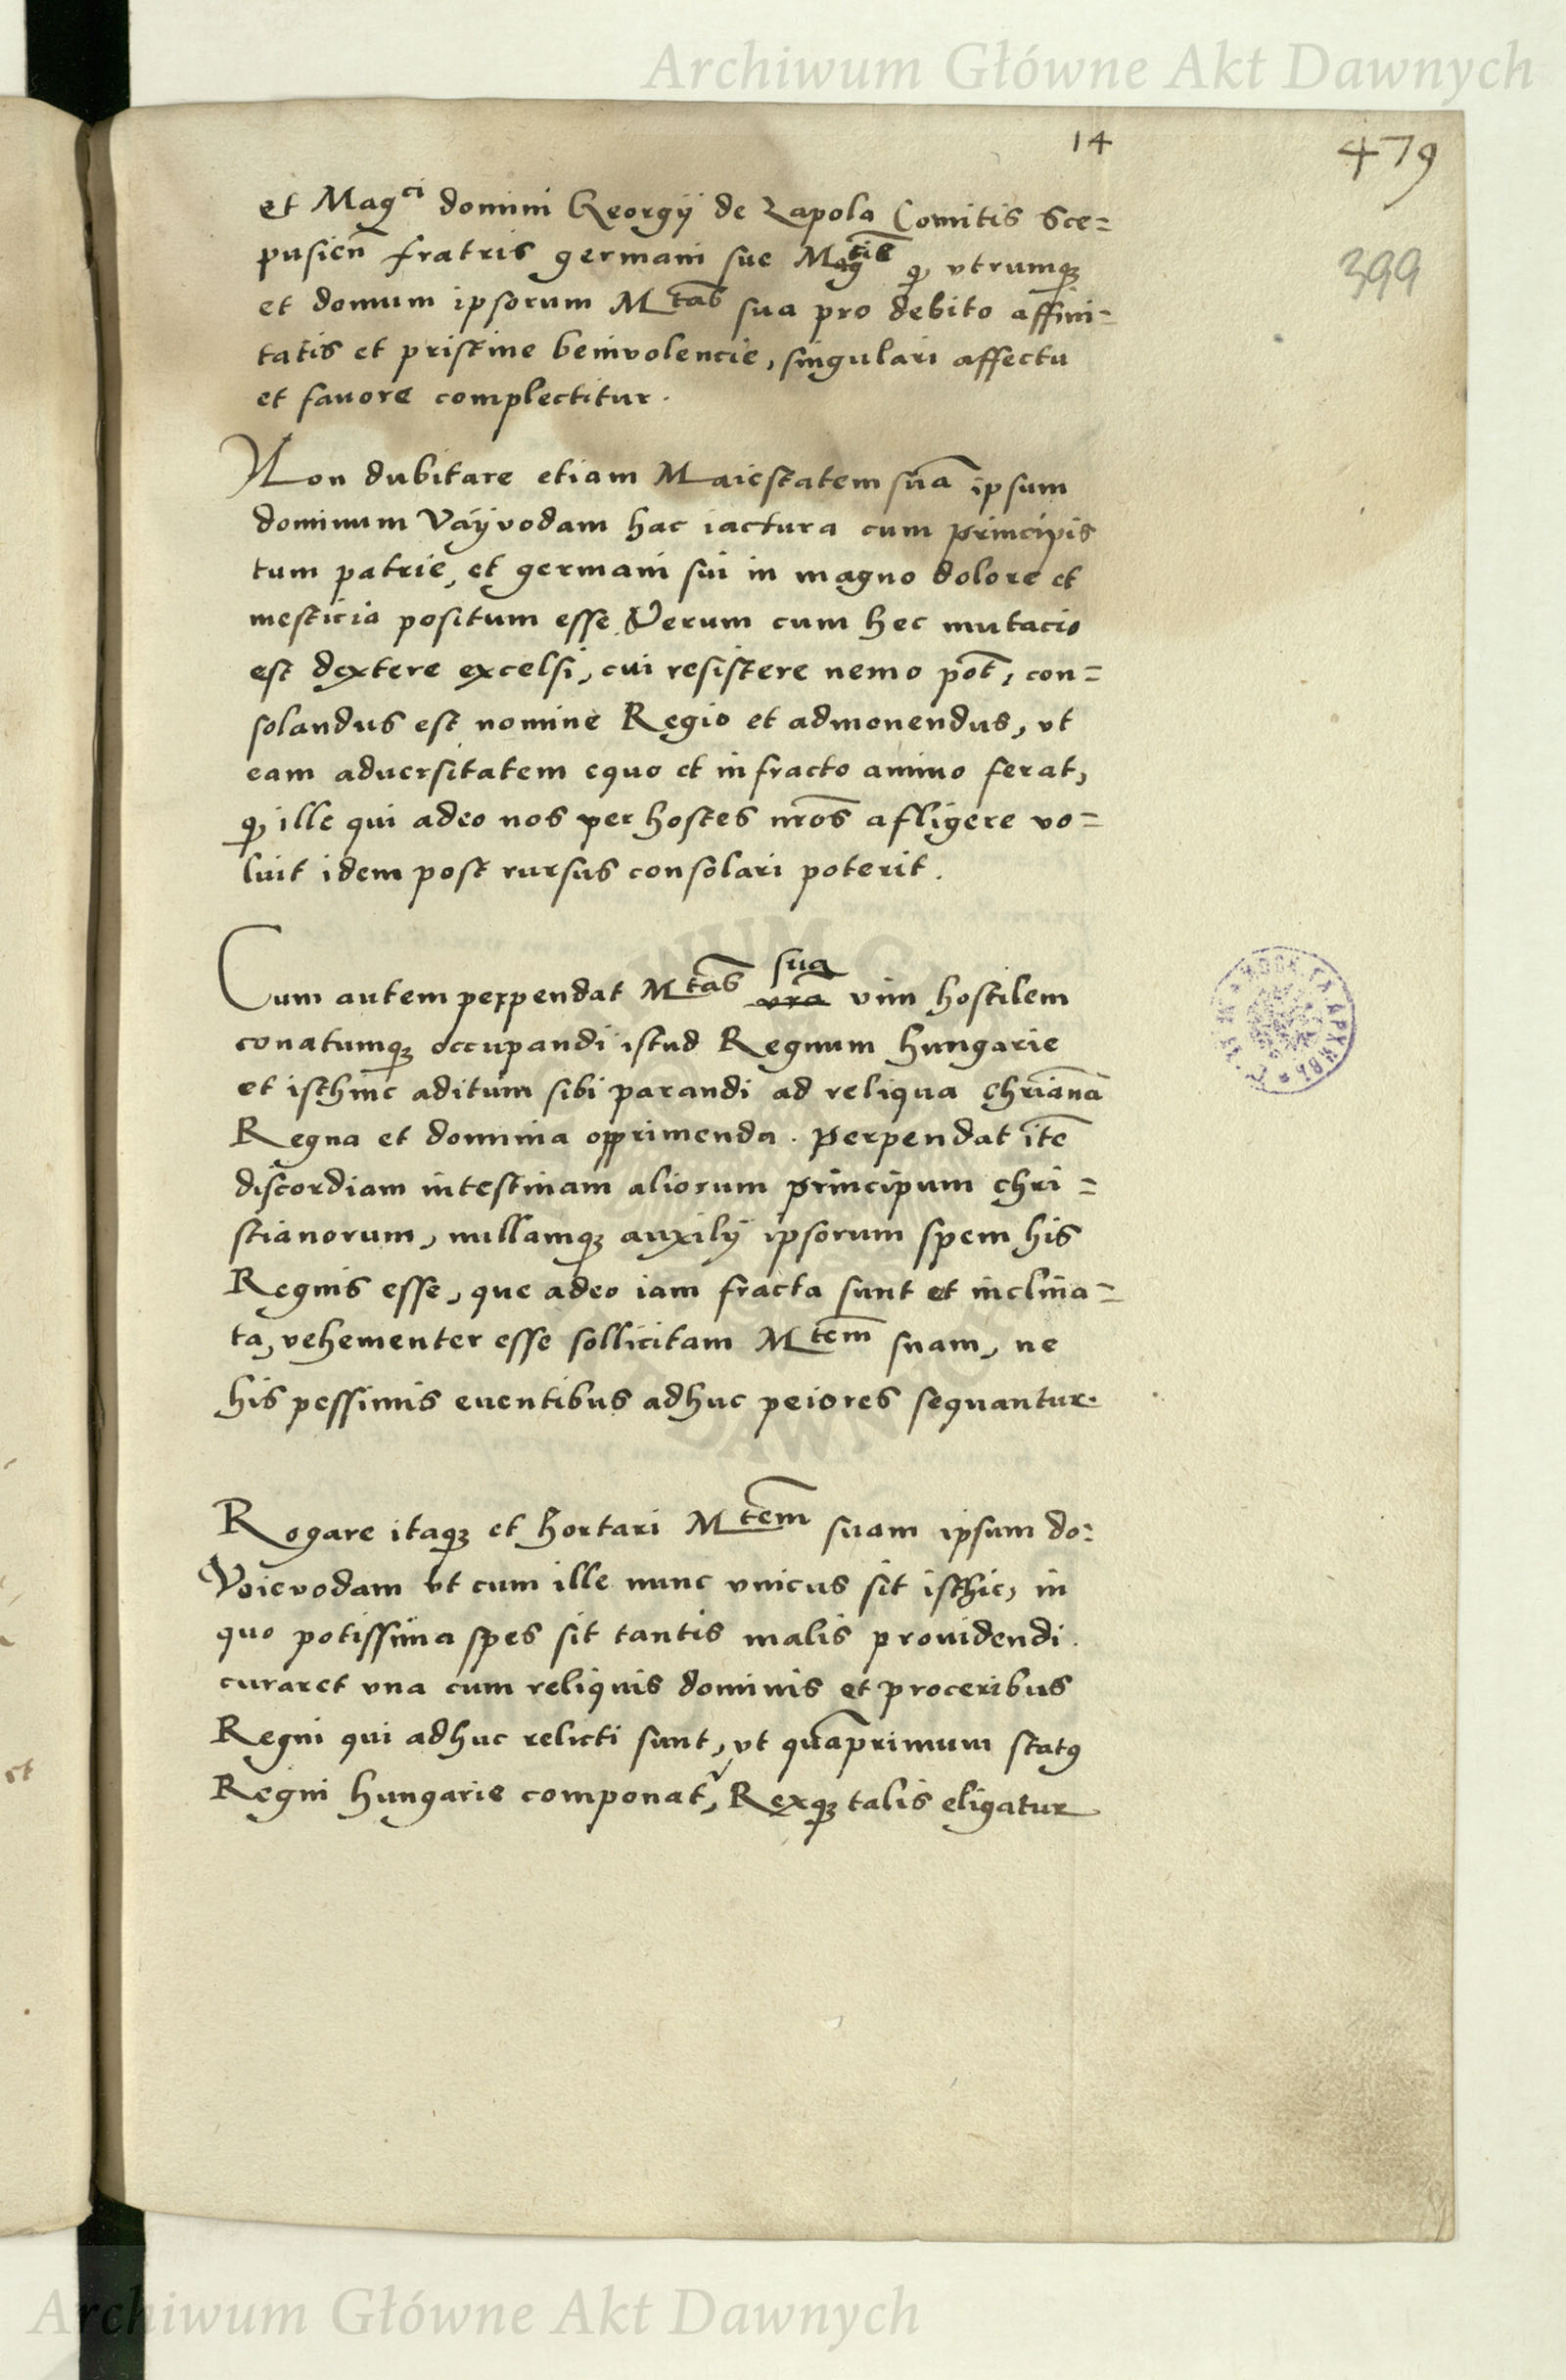 Archiwum Główne Akt Dawnych
14
479
399
et Mag^ci domini Georgÿ de Zapola Comitis Sce=
pusien̄ fratris germani sue Mag^tis q, vtrumqꝫ
et domum ipsorum M^tas sua pro debito affini=
tatis et pristine beniuolencie, singulari affectu
et fauore complectitur.
Non dubitare etiam Maiestatem sua̅ ipsum
dominum Vaÿvodam hac iactura cum principis
tum patrie, et germani sui in magno dolore et
mesticia positum esse. Verum cum hec mutacio
est dextere excelsi, cui resistere nemo pot̅, con=
solandus est nomine Regio et admonendus, vt
eam aduersitatem equo et infracto animo ferat,
q, ille qui adeo nos per hostes nr̅os afligere vo=
luit idem post rursus consolari poterit.
Cum autem perpendat M^tas vr̅a sua vim hostilem
conatumqꝫ occupandi istud Regnum hungarie
et isthinc aditum sibi parandi ad reliqua chr̅iana
Regna et dominia opprimenda. perpendat ite̅
discordiam intestinam aliorum principum chri=
stianorum, nullamqꝫ auxilÿ ipsorum spem his
Regnis esse, que adeo iam fracta sunt et inclina=
ta, vehementer esse sollicitam M^tem suam, ne
his pessimis euentibus adhuc peiores sequantur.
Rogare itaqꝫ et hortari M^tem suam ipsum do:
Voievodam vt cum ille nunc vnicus sit isthic, in
quo potissima spes sit tantis malis prouidendi.
curaret vna cum reliquis dominis et proceribus
Regni qui adhuc relicti sunt, vt qua̅primum statꝰ
Regni hungarie componat^r, Rexqꝫ talis eligatur
et
Archiwum Główne Akt Dawnych